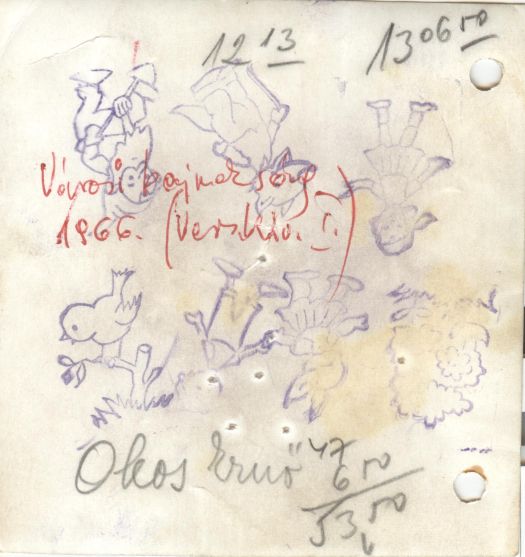 12 13
13 06 50
Városi bajnokság
1966. (Verskla. I.)
Okos Ernő
47
6 50
53 50